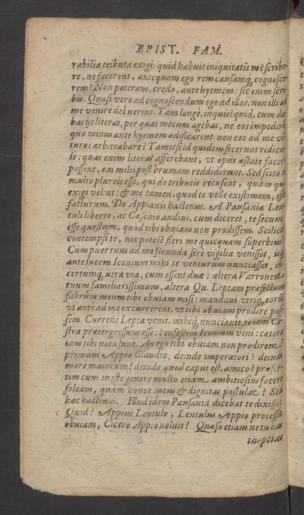 EPIST. FAM.
rabilia tributa exigi: quid habuit iniquitatis me scribe-
re, ne facerent, antequam ego rem causamq́; cognosce-
rem? Non poteram, credo, ante hyemem: sic enim scri-
bis. Quasi vero ad cognoscendum ego ad illos, non illi ad
me venire debuerint. Tam longe, inquis? quid, cum da-
bas iis literas, per quas mecum agebas, ne eos impedirem,
quo minus ante hyemem ædificarent, non eos ad me ven-
turos arbitrabare? Tametsi id quidem fecerunt ridicu-
le: quas enim literas afferebant, vt opus æstate facere
possent, eas mihi post brumam reddiderunt. Sed scito &
multo plureis esse, qui de tributis recusent, quam qui
exigi velint: & me tamen, quod te velle existimem, esse
facturum. De Appianis hactenus. A Pausania Len-
tuli liberto, ac Censo mo audivi, cum diceret, te secum
esse questum, quod tibi obviam non prodissem. Scilicet
contempsi te, nec potest fieri me quicquam superbius.
Cum puer tuus ad me secunda fere vigilia venisset, isq́;
ante lucem Iconium mihi te venturum nunciasset, in-
certumq́; utra via, cum essent duæ: altera Varronem
tuum familiarissimum, altera Qu. Leptam præfectum
fabrum meum tibi obviam misi: mandavi utriq́;
vt ante ad me excurrerent, vt tibi obviam prodire pos-
sem. Currens Lepta venit, mihiq́; nunciavit, te iam Ca-
stra prætergressum esse: confestim Iconium veni: cætera
iam tibi nota sunt. An ego tibi obviam non prodirem?
primum Appio Claudio, deinde imperatori? deinde
more maiorum? deinde quod caput est, amico? præser-
tim cum in isto genere multo etiam ambitiosius facere
soleam, quam honos meus & dignitas postulat? Sed
hæc hactenus. Illud idem Pausania dicebat te dixisse:
Quid? Appius Lentulo, Lentulus Appio processit
obviam, Cicero Appio noluit? Quæso etiam ne tu has
ineptias